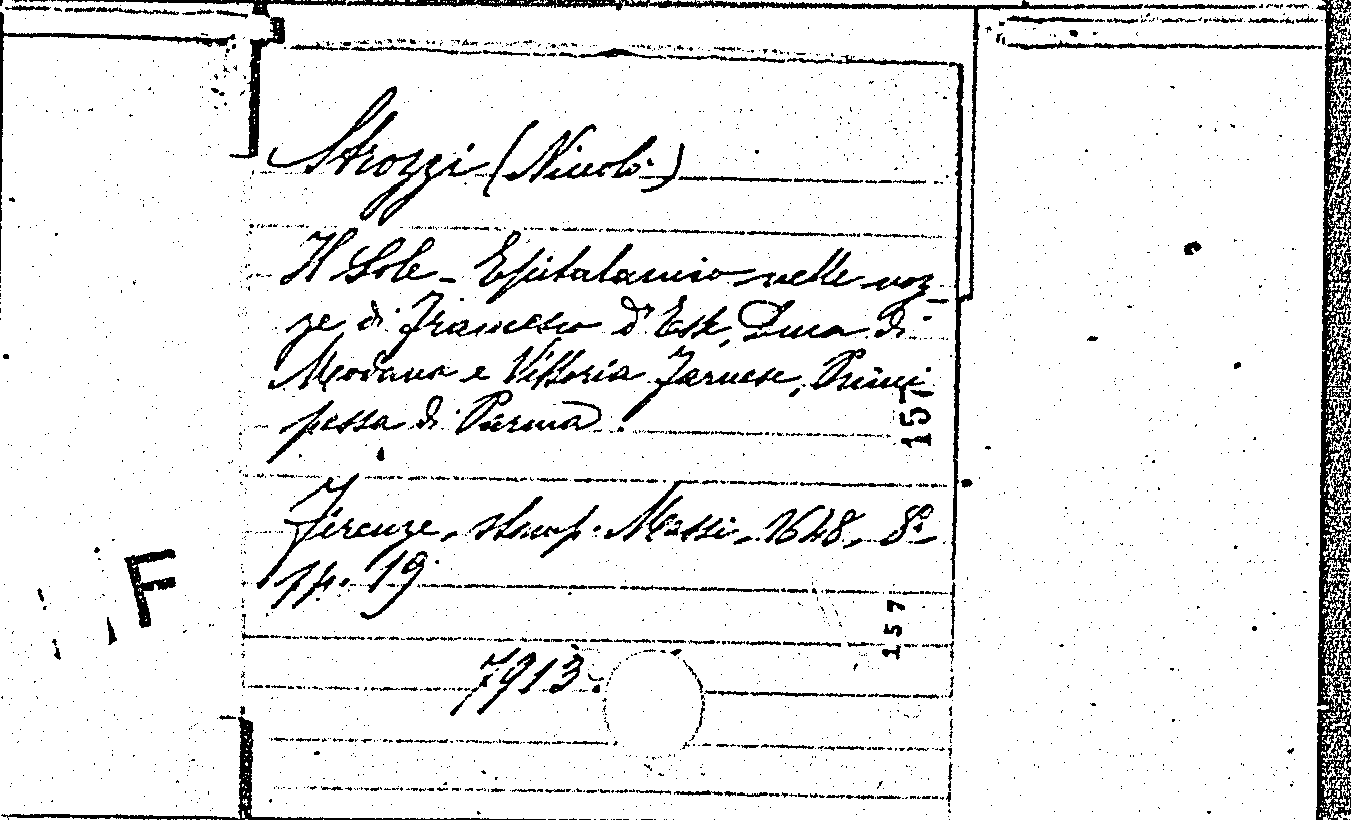 Strozzi (Nicolò)
Il Sole - Epitalamio nelle noz-
ze di Francesco d'Este, Duca di
Modana e Vittoria Farnese, Princi
pessa di Parma.
157
Firenze, stamp. Massi, 1648, 8º
pp. 19.
F
157
7913.